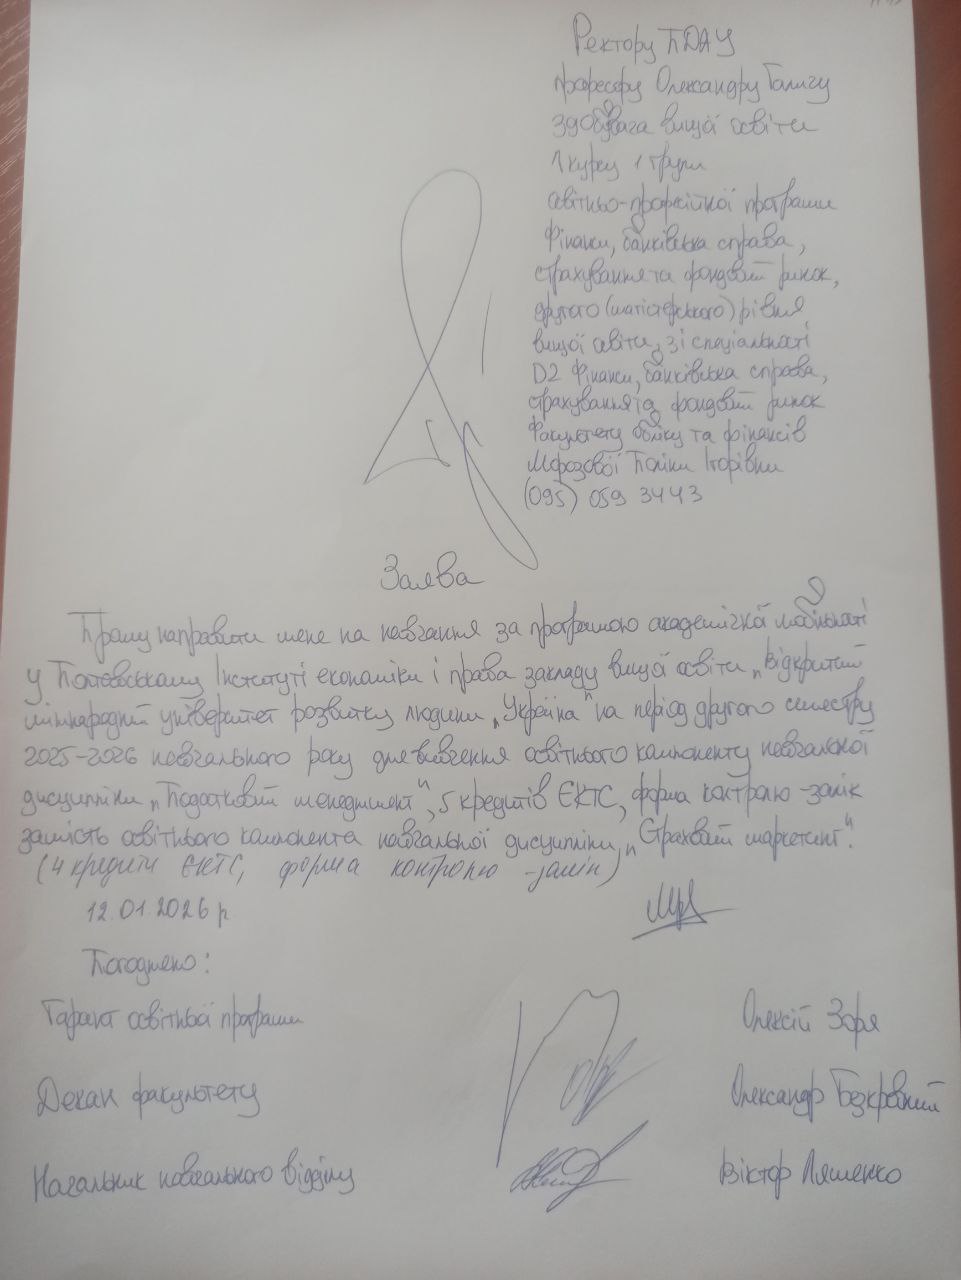 Ректору ПДАУ
професору Олександру Галичу
здобувача вищої освіти
1 курсу 1 групи
освітньо-професійної програми
Фінанси, банківська справа,
страхування та фондовий ринок,
другого (магістерського) рівня
вищої освіти, зі спеціальності
D2 Фінанси, банківська справа,
страхування та фондовий ринок
Факультету обліку та фінансів
Морозової Поліни Ігорівни
(095) 059 3443
Заява
Прошу направити мене на навчання за програмою академічної мобільності
у Полтавському Інституті економіки і права закладу вищої освіти „Відкритий
міжнародний університет розвитку людини „Україна" на період другого семестру
2025-2026 навчального року для вивчення освітнього компоненту навчальної
дисципліни „Податковий менеджмент", 5 кредитів ЄКТС, форма контролю - залік
замість освітнього компонента навчальної дисципліни „Страховий маркетинг".
(4 кредити ЄКТС, форма контролю - залік)
12.01.2026 р
Погоджено:
Гарант освітньої програми Олексій Зоря
Декан факультету Олександр Безкровний
Начальник навчального відділу Віктор Ляшенко